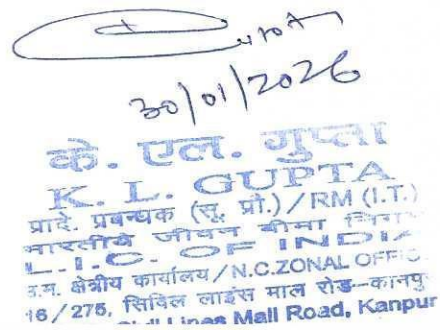 30/01/2026
के. एल. गुप्ता
K. L. GUPTA
प्रादे. प्रबन्धक (सू. प्रौ.)/RM (I.T.)
भारतीय जीवन बीमा निग
L.I.C. OF INDIA
उ.म. क्षेत्रीय कार्यालय/N.C.ZONAL OFFIC
16/275, सिविल लाइंस माल रोड-कानपु
Lines Mall Road, Kanpur